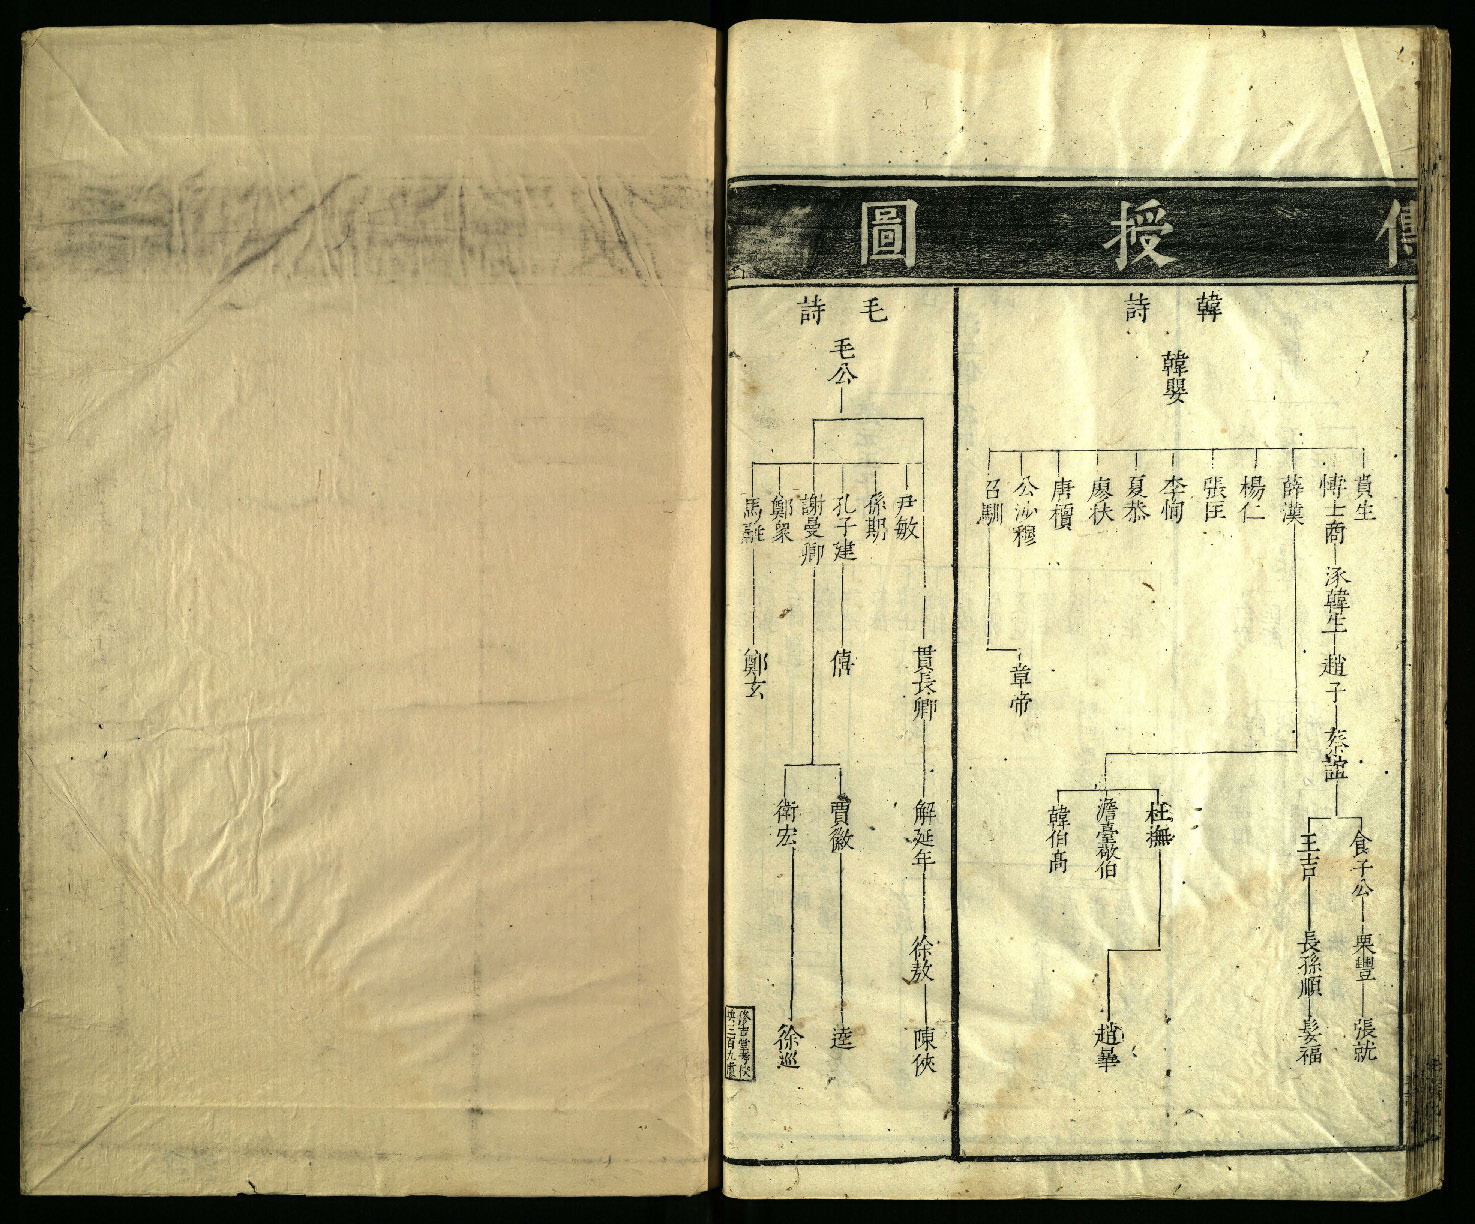 傳授圖
韓詩
韓嬰
賁生
博士商
涿韓生
趙子
蔡誼
食子公
栗豐
張就
王吉
長孫順
髮福
薛漢
杜撫
趙曄
澹臺敬伯
韓伯高
楊仁
張匡
李恂
夏恭
廖扶
唐檀
公沙穆
召馴
章帝
毛詩
毛公
貫長卿
解延年
徐敖
陳俠
尹敏
孫期
孔子建
僖
謝曼卿
賈徽
逵
衛宏
徐巡
鄭眾
馬融
鄭玄